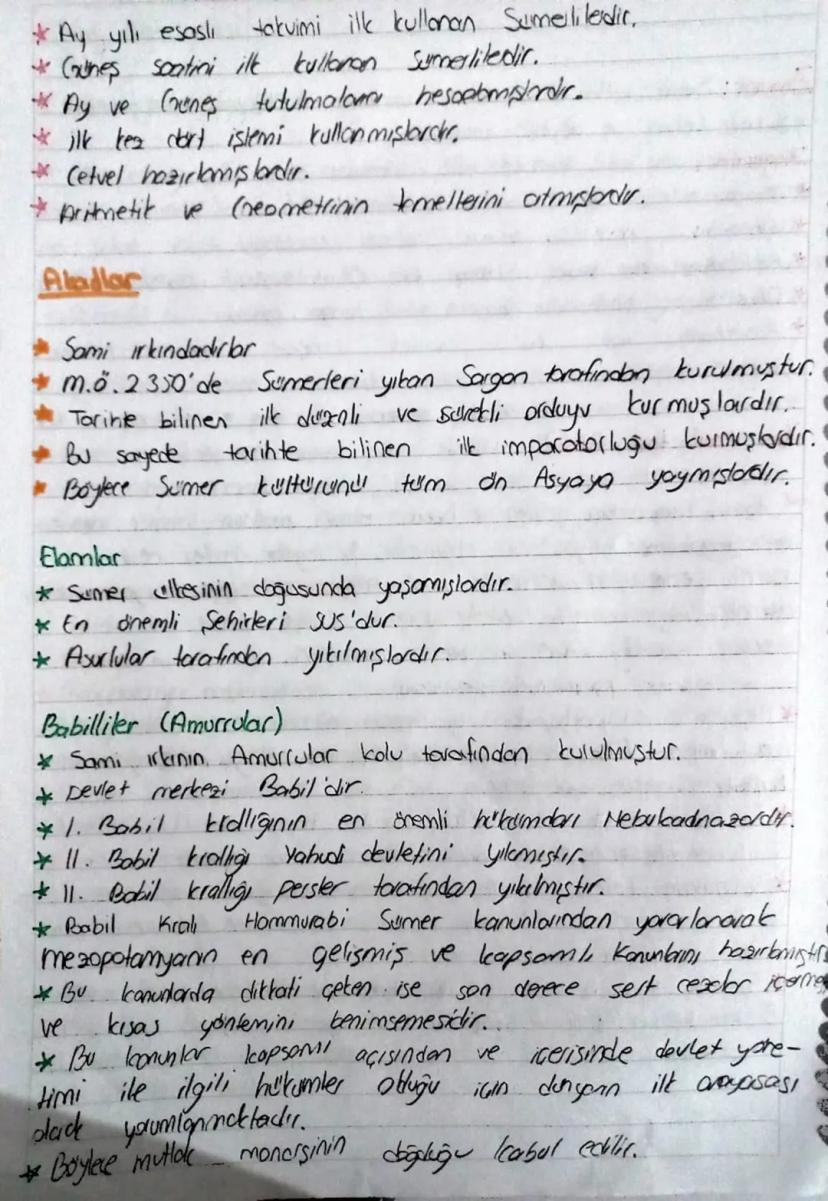 * Ay yılı esaslı takvimi ilk kullanan Sümerlilerdir.
* Güneş saatini ilk kullanan Sümerlilerdir.
* Ay ve Güneş tutulmalarını hesaplamışlardır.
* ilk kez dört işlemi kullanmışlardır.
* Cetvel hazırlamışlardır.
* Aritmetik ve Geometrinin temellerini atmışlardır.
Akadlar
* Sami ırkındadırlar
* M.Ö. 2350'de Sümerleri yıkan Sargon tarafından kurulmuştur.
* Tarihte bilinen ilk düzenli ve sürekli orduyu kurmuşlardır.
* Bu sayede tarihte bilinen ilk imparatorluğu kurmuşlardır.
* Böylece Sümer kültürünü tüm ön Asyaya yaymışlardır.
Elamlar
* Sümer ülkesinin doğusunda yaşamışlardır.
* En önemli Şehirleri SUS'dur.
* Asurlular tarafından yıkılmışlardır.
Babilliler (Amurrular)
* Sami ırkının Amurrular kolu tarafından kurulmuştur.
* Devlet merkezi Babil'dir.
* I. Babil krallığının en önemli hükümdarı Nebukadnazardır.
* II. Babil krallığı Yahudi devletini yıkmıştır.
* II. Babil krallığı persler tarafından yıkılmıştır.
* Babil Kralı Hammurabi Sümer kanunlarından yararlanarak
mezopotamyanın en gelişmiş ve kapsamlı Kanunlarını hazırlamıştır
* Bu kanunlarda dikkati çeken ise son derece sert cezalar içermesi
ve kısas yöntemini benimsemesidir.
* Bu kanunlar kapsamı açısından ve içerisinde devlet yöne-
timi ile ilgili hükümler olduğu için dünyanın ilk anayasası
olarak yorumlanmaktadır.
* Böylece mutlak monarşinin doğduğu kabul edilir.